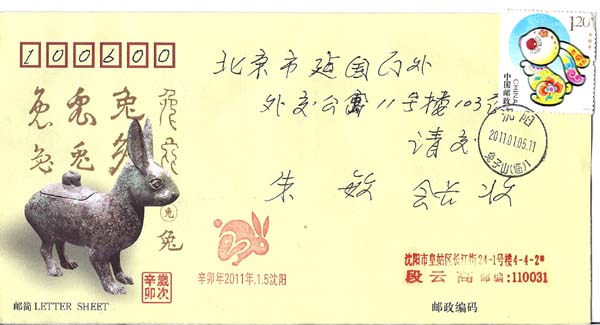 100600
1.20
中国邮政
CHINA
北京市建国门外
外交公寓11号楼103室
请交
朱敏会长收
沈阳
2011.01.05.11
兔子山(临)1
兔
辛卯年2011年.1.5沈阳
歲次
辛卯
沈阳市皇姑区长江街24-1号楼4-4-2#
段云商 邮编:110031
邮简 LETTER SHEET
邮政编码